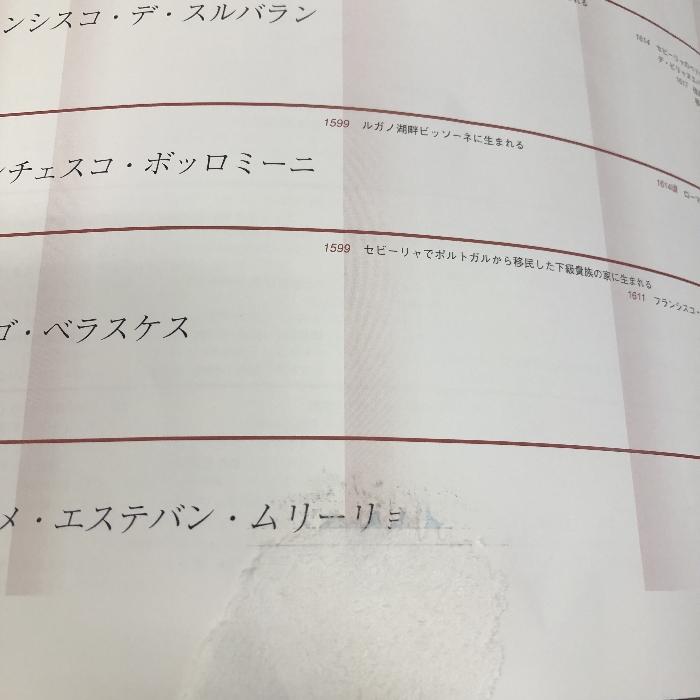 ンシスコ・デ・スルバラン
1614
1599 ルガノ湖畔ビッソーネに生まれる
チェスコ・ボッロミーニ
1614頃 ローマ
1599 セビーリャでポルトガルから移民した下級貴族の家に生まれる
1611 フランシスコ・
ゴ・ベラスケス
メ・エステバン・ムリーリョ